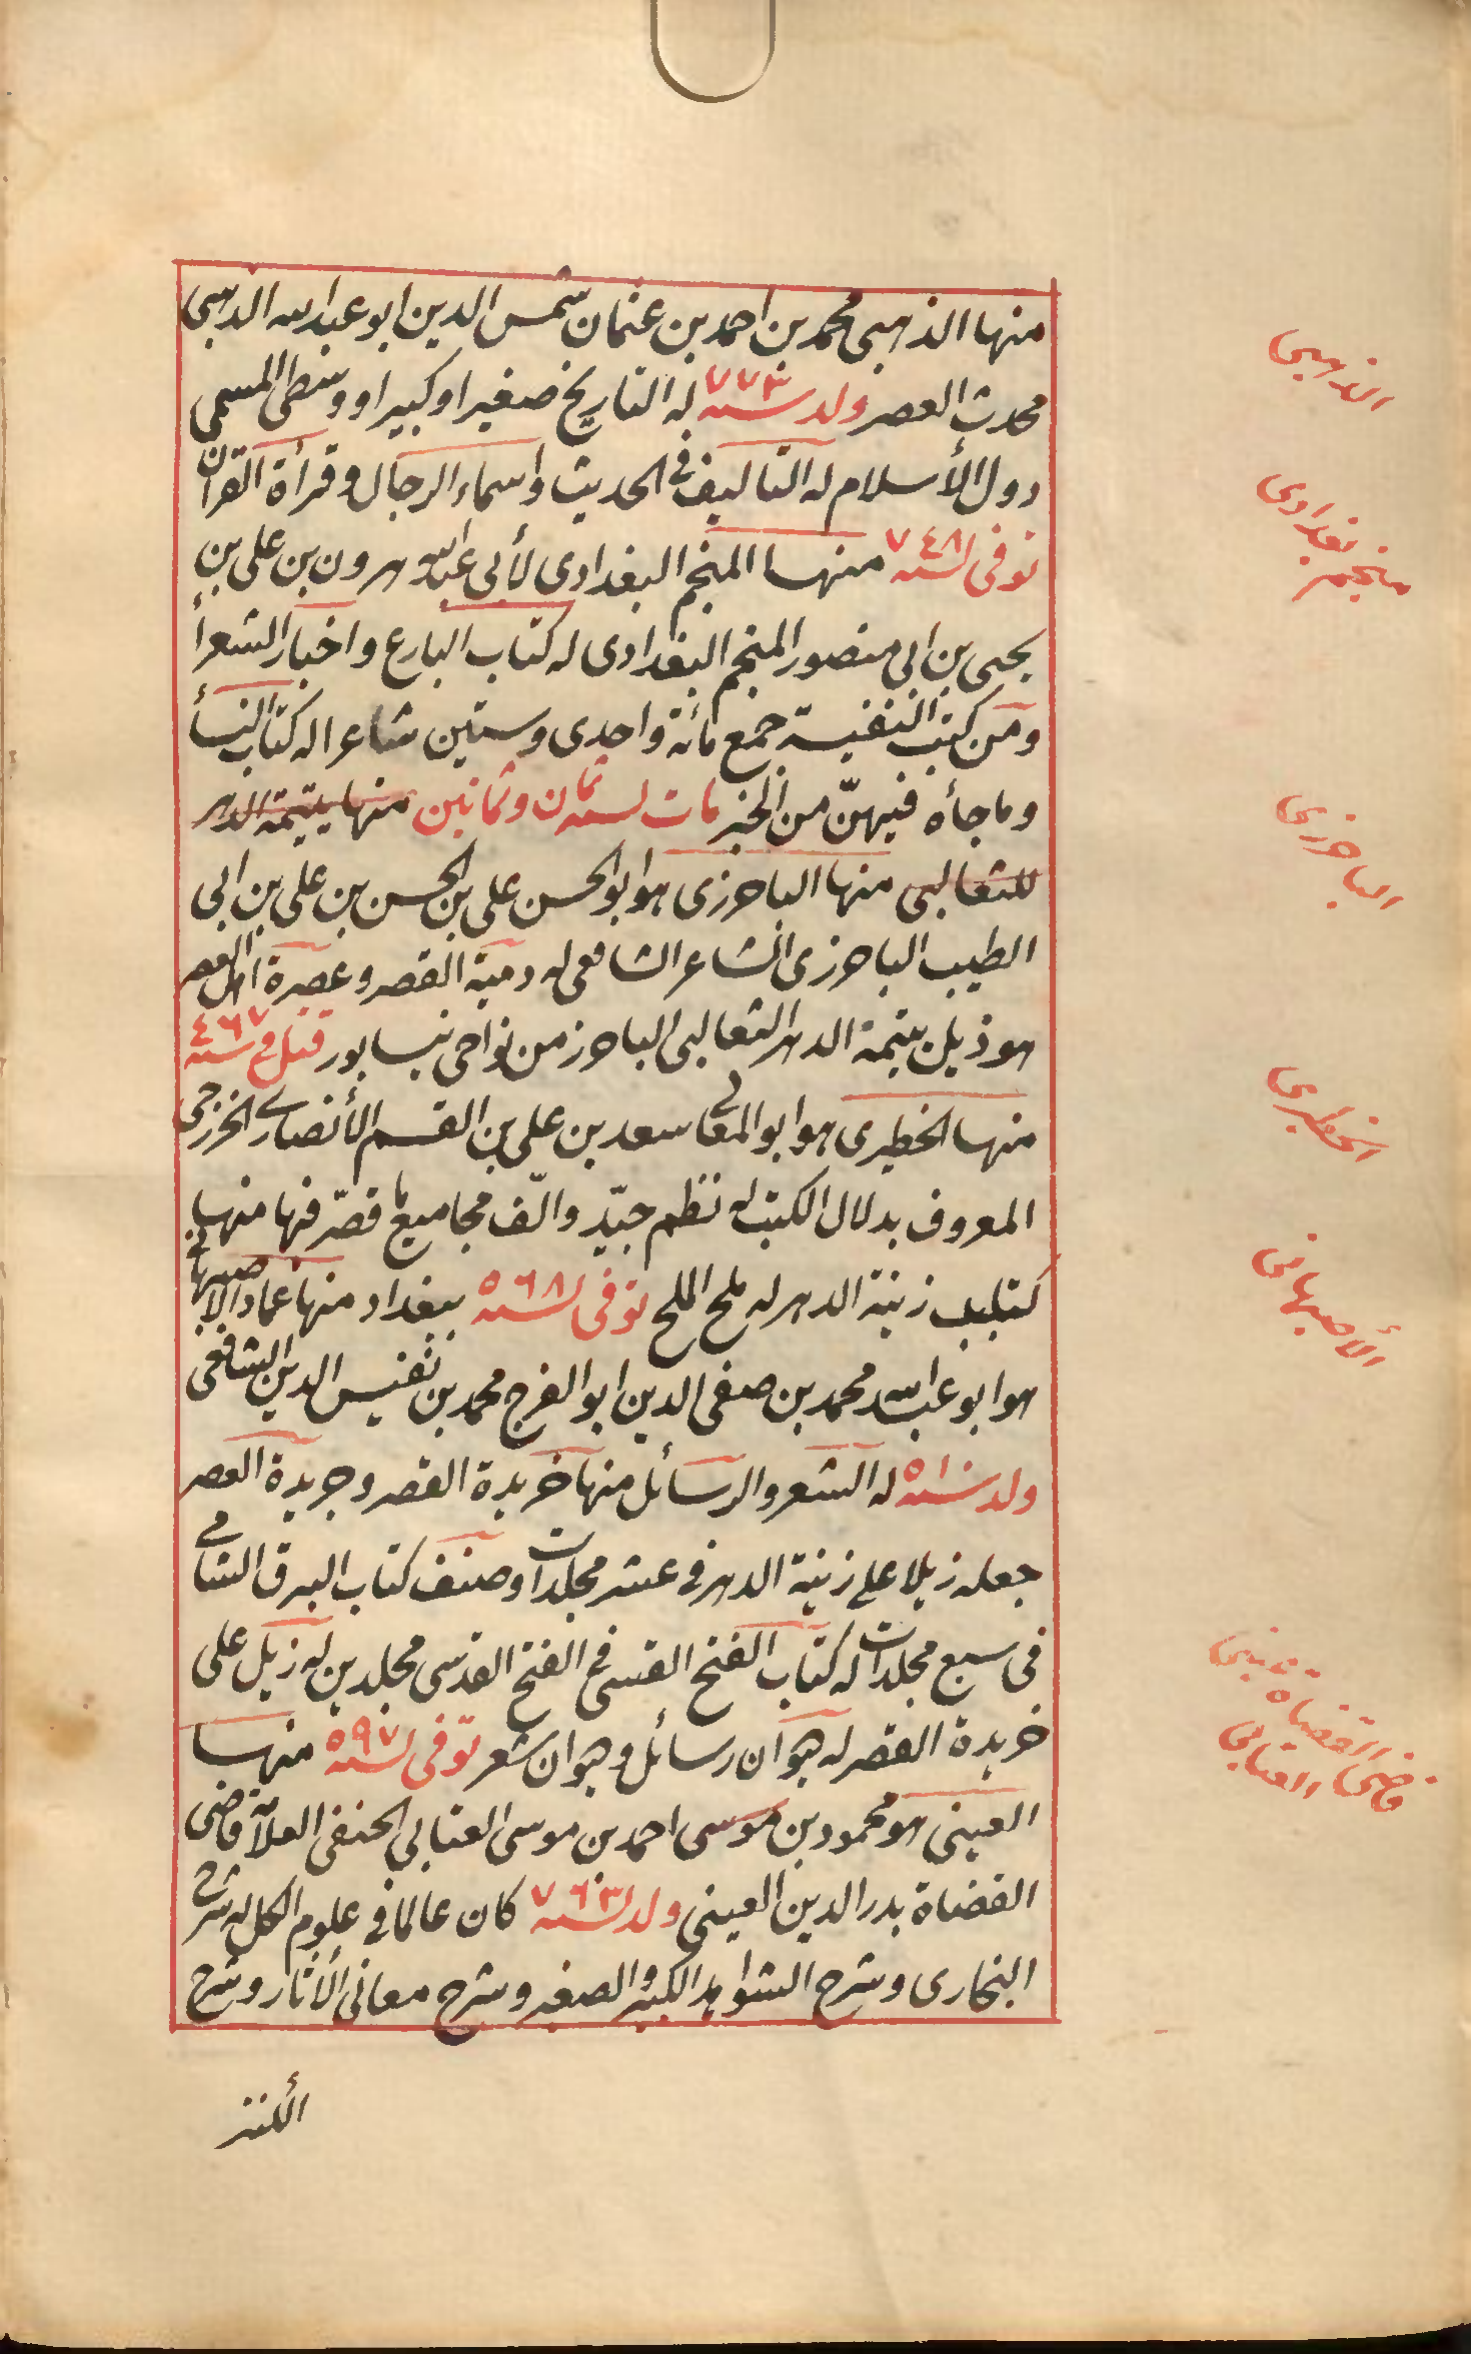 منها الذهبى محمد بن احمد بن عثمان شمس الدين ابو عبد الله الذهبى
محدث العصر ولد سنه ٧٧٣ له التاريخ صغيرا وكبيرا ووسطى المسمى
دول الأسلام له التاليف فى الحديث واسماء الرجال وقرأة القرآن
توفى لسنه ٧٤٨ منهــا المنجم البغدادى لأبى عبد الله هرون بن على بن
يحيى بن ابى منصور المنجم البغدادى له كتاب البارع واخبار الشعرأ
ومن كتب النفيسة جمع مائة واحدى وستين شاعرا له كتاب النسأ
وما جأه فيهنّ من الخبر مات لسنه ثمان وثمانين منها يتيمة الدهر
للثعالبى منها الباخرزى هو ابو الحسن على بن الحسن بن على بن ابى
الطيب الباخرزى الشاعر الشافعى له دمية القصر وعصرة اهل العصر
هو ذيل يتيمة الدهر الثعالبى الباخرز من نواحى نيسابور قتل فى سنه ٤٦٧
منهــا الخطيرى هو ابو المعالى سعد بن على بن القسم الأنصارى الخزرجى
المعروف بدلال الكتب له نظم جيّد والّف مجاميع ما قصّر فيها منها
كتاب زينة الدهر له ملح الملح توفى لسنه ٥٦٨ ببغداد منها عماد الاصبهانى
هو ابو عبد الله محمد بن صفى الدين ابو الفرج محمد بن نفيس الدين الشافعى
ولد سنه ٥١٠ له الشعر والرسائل منها خريدة القصر وجريدة العصر
جعله زيلا على زينة الدهر فى عشر مجلدات وصنف كتاب البرق الشامى
فى سبع مجلدات له كتاب الفتح القسى فى الفتح القدسى مجلدين له زيل على
خريدة القصر له هوان رسائل وهوان شعر توفى لسنه ٥٩٧ منهــا
العينى هو محمود بن موسى احمد بن موسى العنتابى الحنفى العلامة قاضى
القضاة بدر الدين العينى ولد لسنه ٧٦٣ كان عالما فى علوم الكل له شرح
البخارى وشرح الشواهد الكبير والصغير وشرح معانى الأثار وشرح
الكنز
الذهبى
منجم بغدادى
الباخرزى
الخطيرى
الأصبهانى
قاضى القضاة عينى
العنتابى